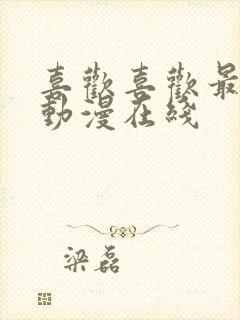 喜歡喜歡最
動漫在綫
梁磊